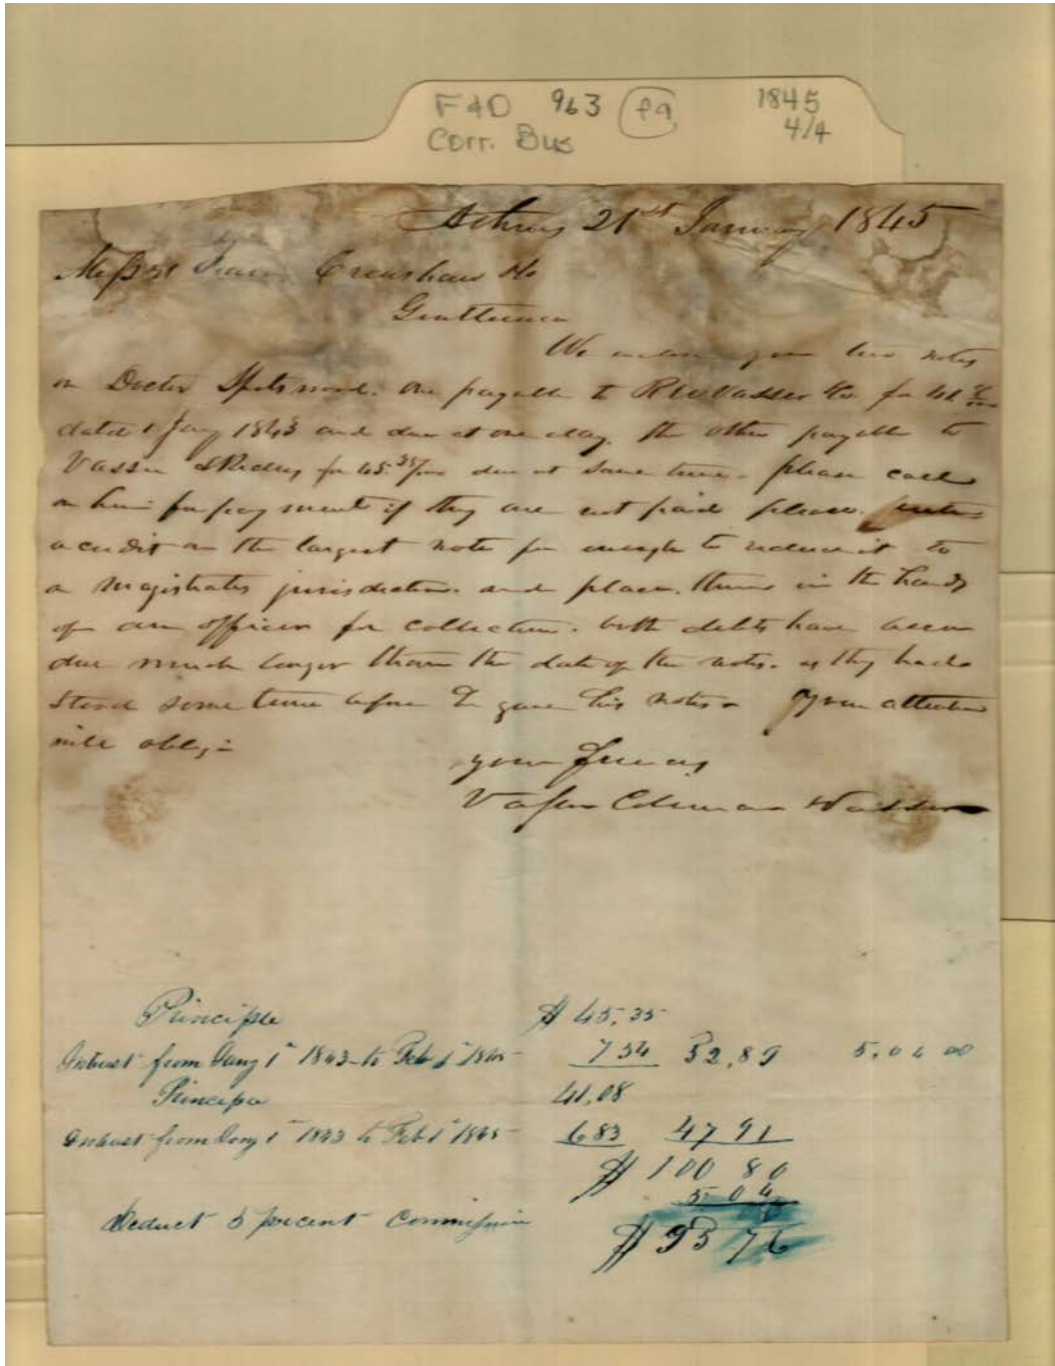 F&D 963 fa 1845
Corr. Bus 4/4
Athens 21st January 1845
Messrs Crenshaw & Co
Gentlemen
We enclose you two notes
on Doctor Spotswood. One payable to R W Vasser & Co for 41
dated 1 Jany 1843 and due at one day. the other payable to
Vasser & for 45.35/100 due at same time - please call
on him for payment if they are not paid please
a credit on the largest note for enough to reduce it to
a magistrates jurisdiction. and place them in the hands
of an officer for collection. both debts have been
due much longer than the date of the notes. as they had
stood some time before D gave his notes - Your attention
will oblg:
your friends
Vasser
Principle $45.35
Interest from Jany 1st 1843 to Feb 1st 1845 - 7 54 52,89 5.04 00
Principa 41,08
Interest from Jany 1st 1843 to Feb 1st 1845 - 6 83 47 91
$100 80
5 04
Deduct 5 precent Commission
$95 76